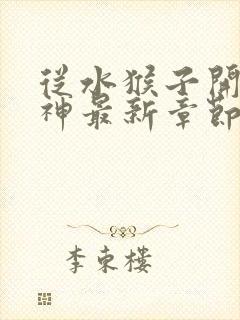 從水猴子開
神最新章節
李東樓